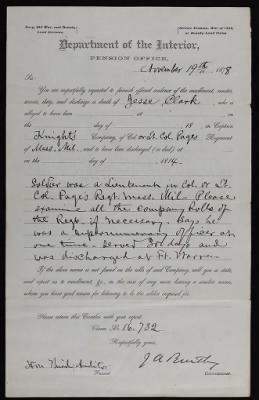 Department of the Interior,
PENSION OFFICE,
November 19th, 1878
Sir:
You are respectfully requested to furnish official evidence of the enrollment, muster,
service, duty, and discharge or death of Jesse Clark, who is
alleged to have been at on
the day of , 18 in Captain
Knights Company, of Col or Lt Col Pages Regiment
of Mass. Mil. and to have been (discharged or died) at
on the day of , 1814.
Soldier was a Lieutenant in Col. or Lt.
Col. Pages Regt. Mass. Mil. Please
examine all the Company Rolls of
the Regt. if necessary. Says he
was a supernumerary officer at
one time. Served 30 days and
was discharged at Ft. Warren
If the above name is not found on the rolls of said Company, will you so state,
and report as to enrollment, &c., in the case of any man bearing a similar name,
whom you have good reason for believing to be the soldier inquired for.
Please return this Circular with your report.
Claim No. 16.732
Respectfully yours,
J A Bentley
Commissioner.
Hon Third Auditor
Present